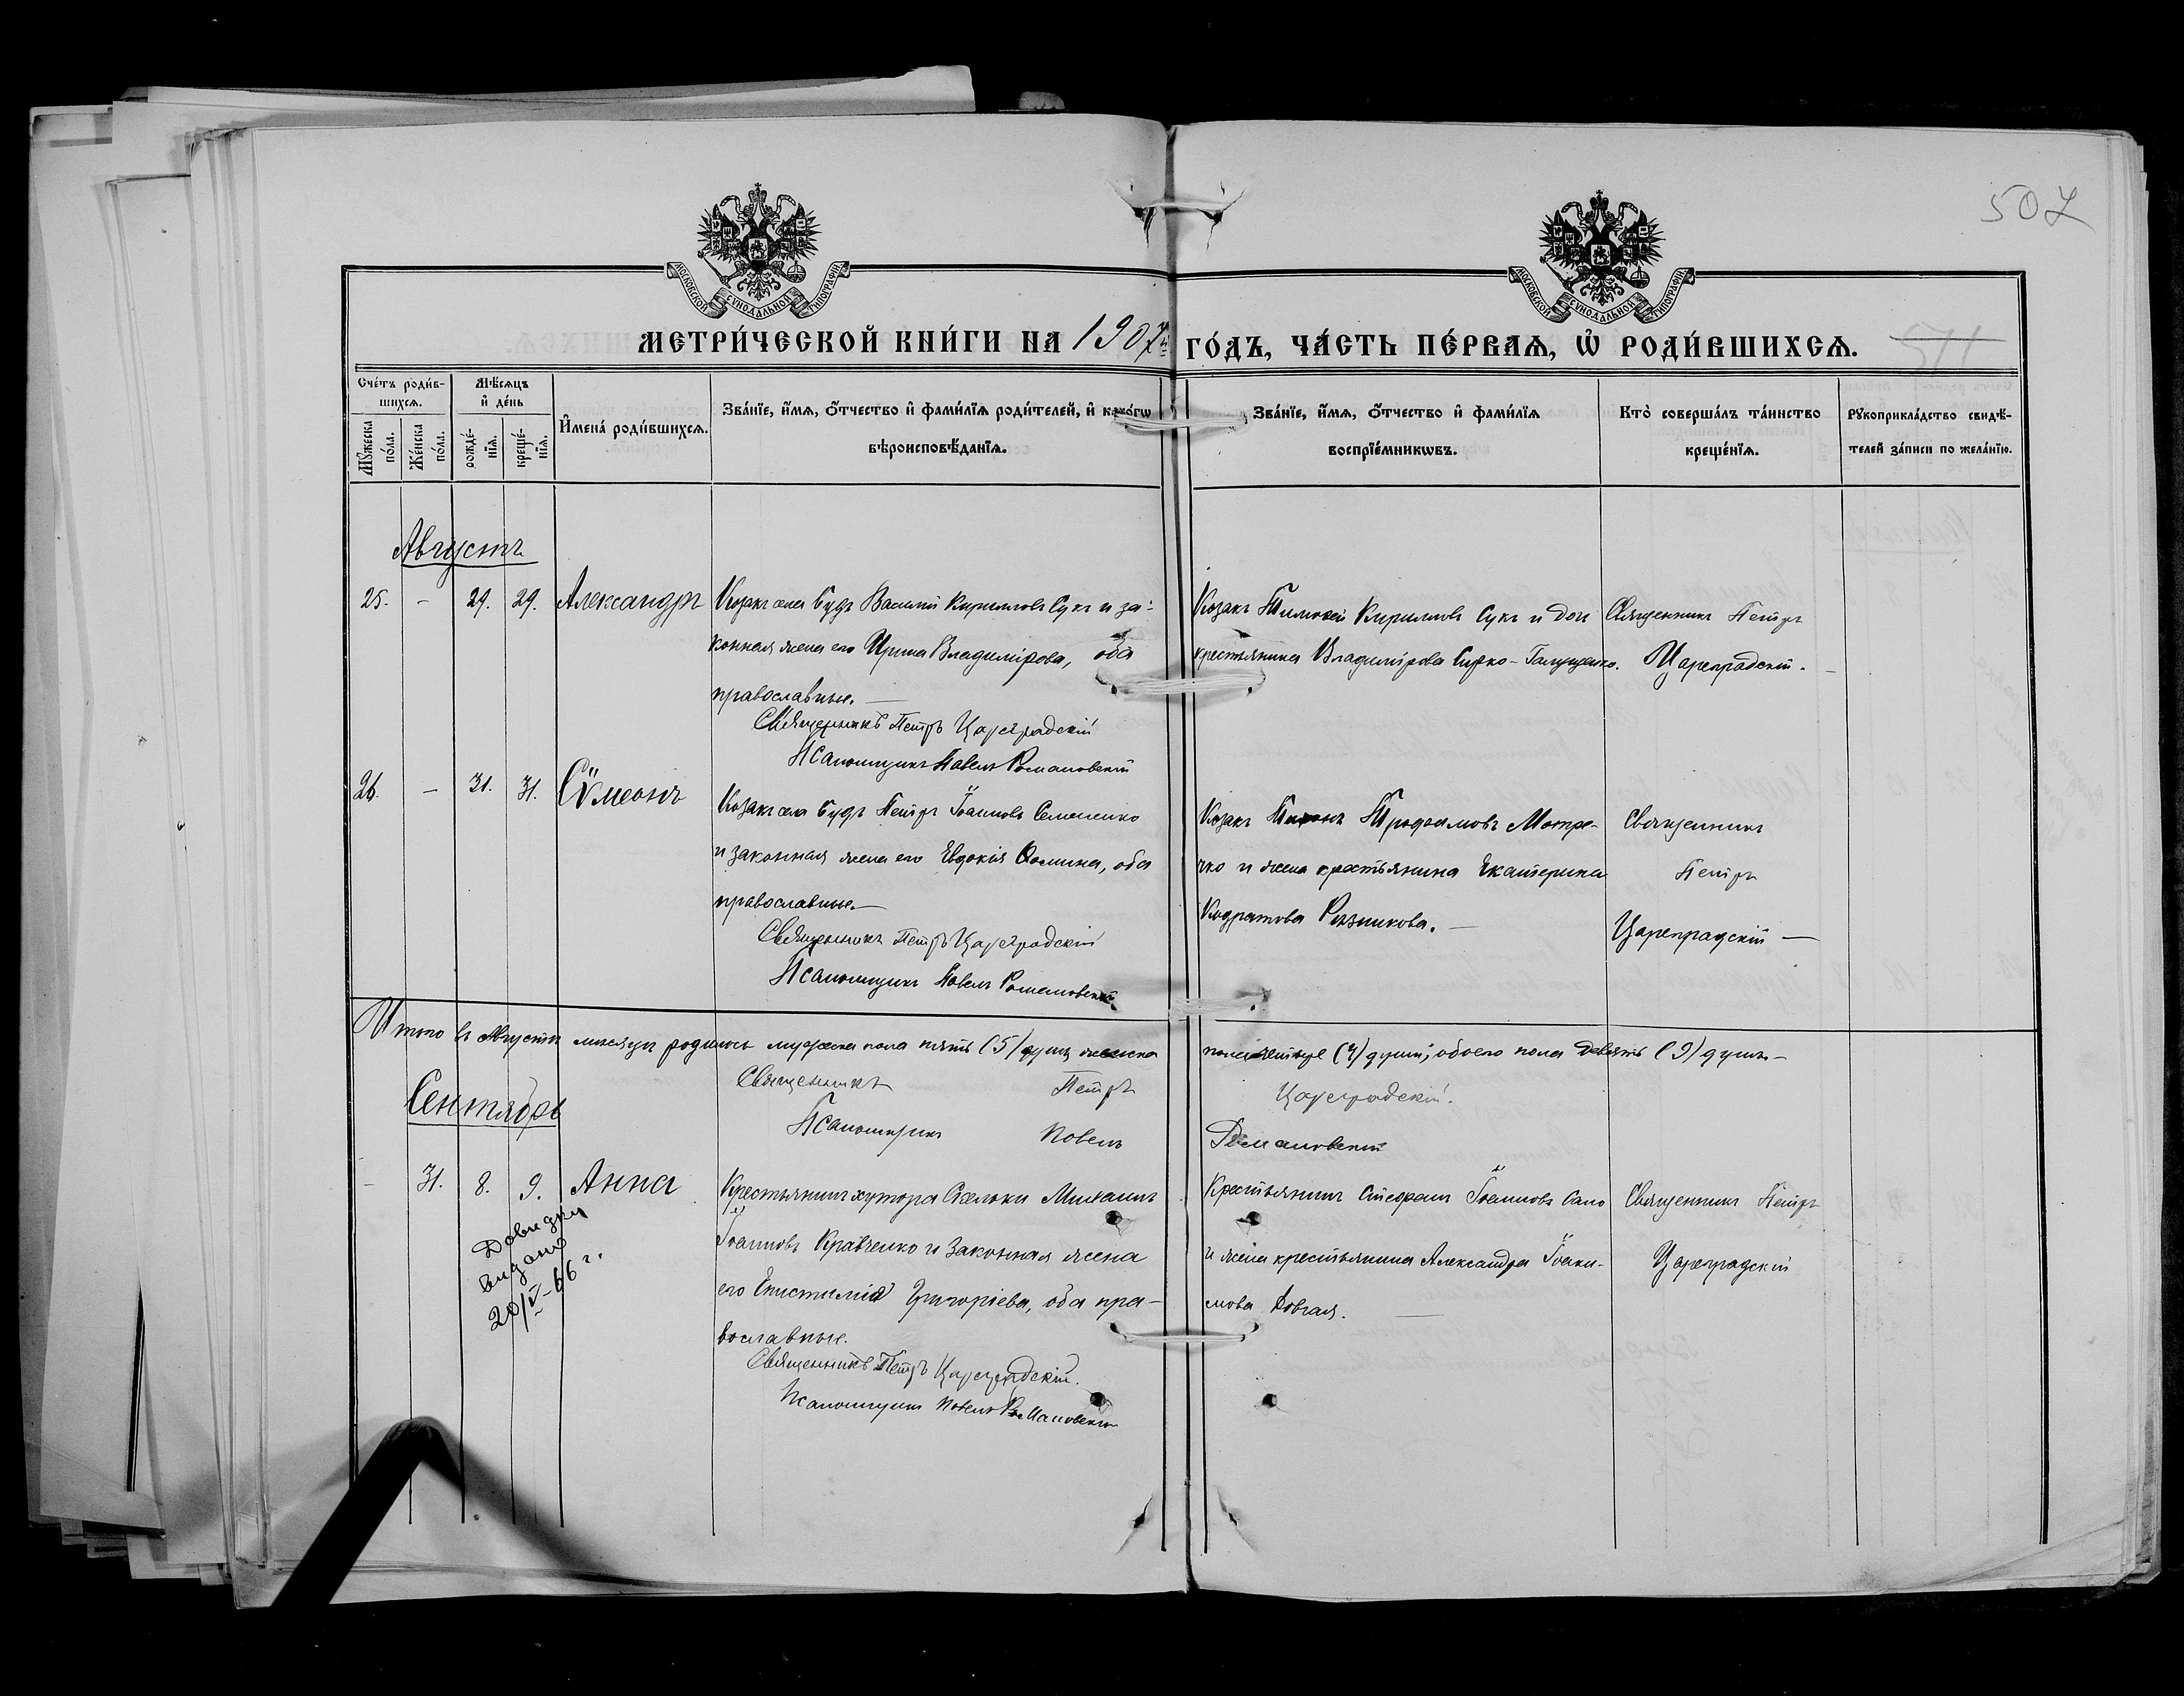 507
МОСКОВСКОЙ СѴНОДАЛЬНОЙ ТИПОГРАФІИ
МОСКОВСКОЙ СѴНОДАЛЬНОЙ ТИПОГРАФІИ
МЕТРИ́ЧЕСКОЙ КНИ́ГИ НА 1907й ГО́ДЪ, ЧА́СТЬ ПЕ́РВАѦ, Ѡ҆ РОДИ́ВШИХСѦ.
Сче́тъ роди́в-
шихсѧ.
Мꙋ́жеска по́ла.
Же́нска по́ла.
Мѣ́сѧцъ и҆ де́нь
рожде́-
нїѧ.
креще́-
нїѧ.
И҆мена̀ роди́вшихсѧ.
Зва́нїе, и҆́мѧ, ѻ҆́тчество и҆ фами́лїѧ роди́телей, и҆ како́гѡ
вѣроисповѣ́данїѧ.
Зва́нїе, и҆́мѧ, ѻ҆́тчество и҆ фами́лїѧ
воспрїе́мникѡвъ.
Кто̀ соверша́лъ та́инство
креще́нїѧ.
Рꙋкоприкла́дство свидѣ́-
телей за́писи по жела́нїю.
Августъ
25. - 29. 29. Александръ
Козакъ села Будъ Василій Кирилловъ Сукъ и за-
конная жена его Ирина Владимірова, оба
православные. —
Священникъ Петръ Цареградскій
Псаломщикъ Павелъ Романовскій
Козакъ Тимофей Кирилловъ Сукъ и дочь
крестьянина Владимірова
Священникъ Петръ
Цареградскій. -
26. - 31. 31. Сѷмеонъ
Козакъ села Будъ Петръ Іоанновъ Семененко
и законная жена его Евдокія Ѳомина, оба
православные. —
Священникъ Петръ Цареградскій
Псаломщикъ Павелъ Романовскій
Козакъ Трофимовъ Мотре-
чко и жена крестьянина Екатерина
Кодратова Рязникова. —
Священникъ
Петръ
Цареградскій —
Итого въ Августѣ месяцѣ родилось мужеска пола пять (5) душъ женска
пола четыре (4) души; обоего пола девять (9) душъ -
Священникъ Петръ Цареградскій.
Псаломщикъ Павелъ Романовскій
Сентябрь
- 31. 8. 9. Анна
Довідку
видано
20/V-66 г.
Крестьянинъ хутора Михаилъ
Іоанновъ Кравченко и законная жена
его Епистимія Григоріева, оба пра-
вославные.
Священникъ Петръ Цареградскій.
Псаломщикъ Павелъ Романовскій
Крестьянинъ Стефанъ Іоанновъ Сало
и жена крестьянина Александра Іоаки-
мова Довгая. —
Священникъ Петръ
Цареградскій